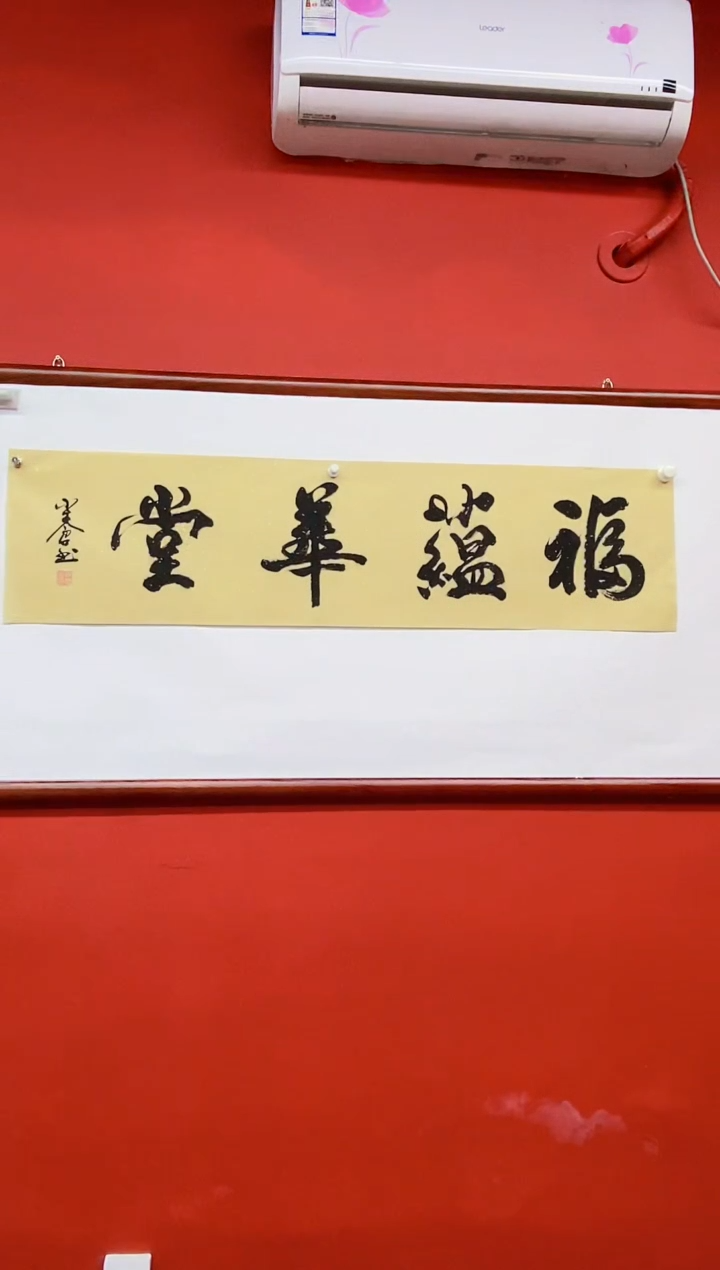 Leader
福蘊華堂